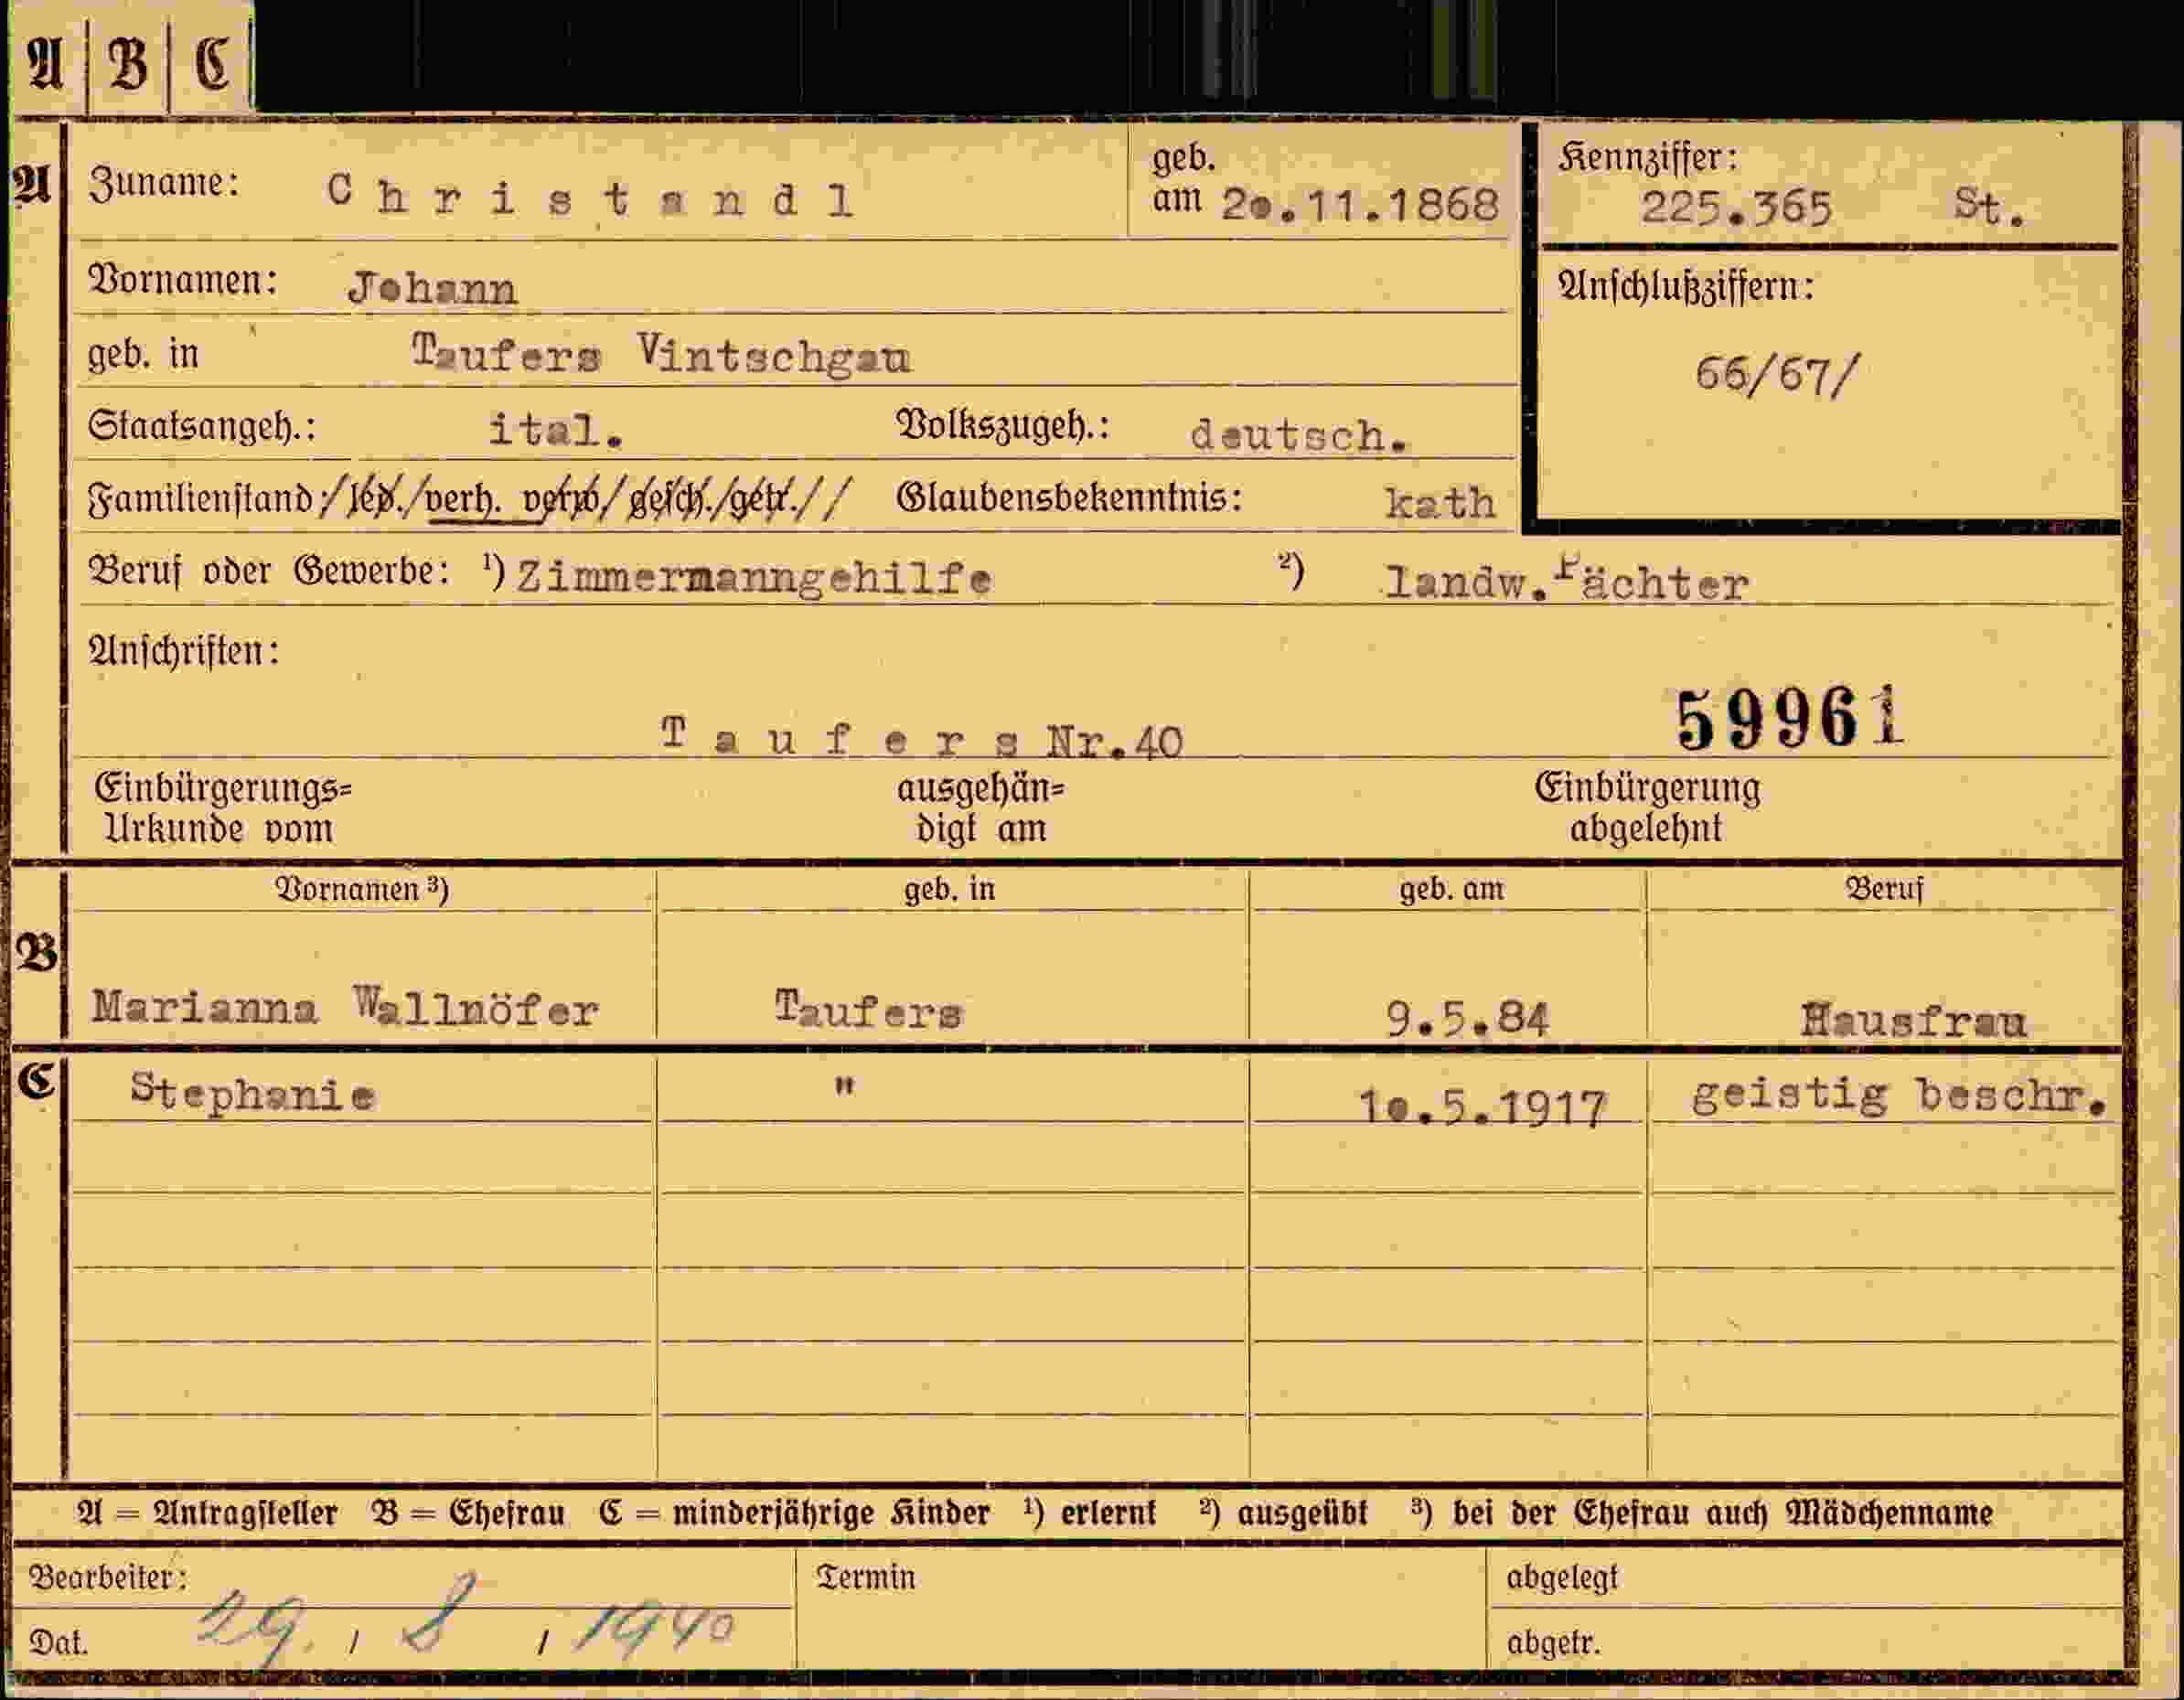 A | B | C
A Zuname: Christandl geb. am 20.11.1868 Kennziffer: 225.365 St.
Vornamen: Johann Anschlußziffern:
geb. in Taufers Vintschgau 66/67/
Staatsangeh.: ital. Volkszugeh.: deutsch.
Familienstand:/led./verh. verw/gesch./getr.// Glaubensbekenntnis: kath
Beruf oder Gewerbe: ¹) Zimmermanngehilfe ²) landw.Pächter
Anschriften:
Taufers Nr.40 59961
Einbürgerungs= ausgehän= Einbürgerung
Urkunde vom digt am abgelehnt
Vornamen ³) geb. in geb. am Beruf
B Marianna Wallnöfer Taufers 9.5.84 Hausfrau
C Stephanie " 10.5.1917 geistig beschr.
A = Antragsteller B = Ehefrau C = minderjährige Kinder ¹) erlernt ²) ausgeübt ³) bei der Ehefrau auch Mädchenname
Bearbeiter: Termin abgelegt
Dat. 29. / 8 / 1940 abgetr.